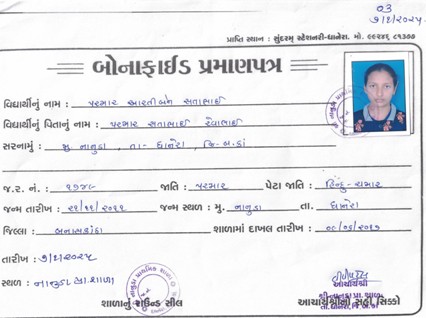 03
૭/૬/૨૦૨૫
પ્રાપ્તિ સ્થાન : સુંદરમ્ સ્ટેશનરી-ધાનેરા. મો. ૯૯૨૪૬ ૮૧૩૭૭
બોનાફાઈડ પ્રમાણપત્ર
વિદ્યાર્થીનું નામ : પરમાર આરતીબેન સતાભાઈ
વિદ્યાર્થીનું પિતાનું નામ : પરમાર સતાભાઈ રેવાભાઈ
સરનામું : મુ. નાનુડા , તા- ધાનેરા , જિ-બ.કાં
જ.ર. નં. : ૨૭૪૯ જાતિ : પરમાર પેટા જાતિ : હિન્દુ-ચમાર
જન્મ તારીખ : જન્મ સ્થળ : મુ. નાનુડા તા. ધાનેરા
જિલ્લા : બનાસકાંઠા શાળામાં દાખલ તારીખ :
તારીખ : ૭/૬/૨૦૨૫
સ્થળ : નાનુડા પ્રા.શાળા
શાળાનું રાઉન્ડ સીલ
આચાર્યશ્રી
આચાર્યશ્રીની સહી સિક્કો